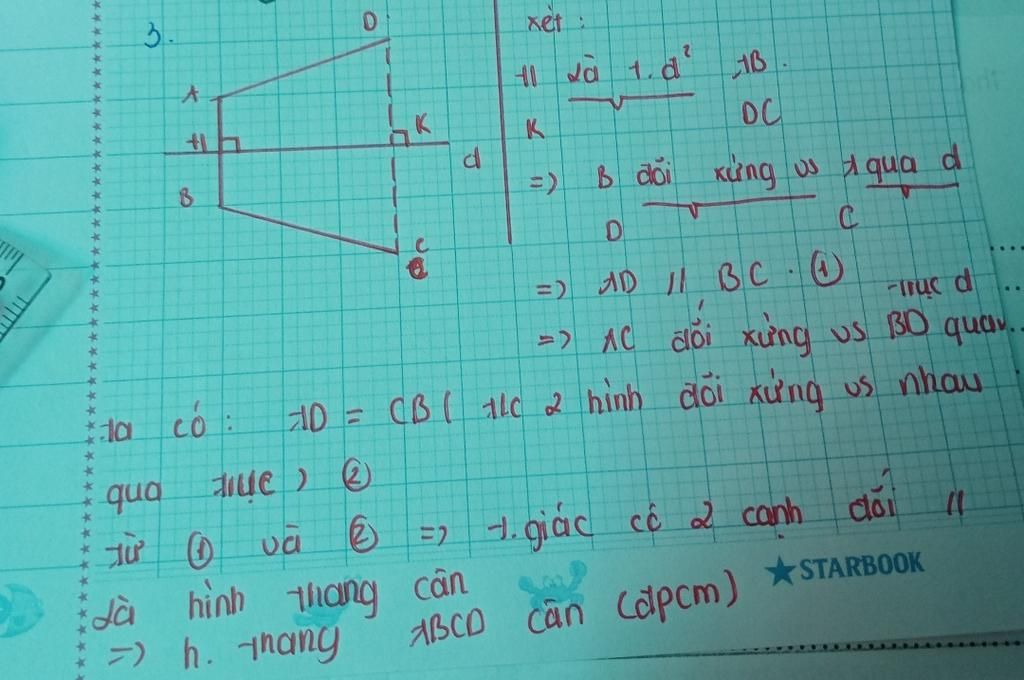 3.
D
A
H
K
d
B
C
xét :
H là t.đ² AB.
K DC
=> B đối xứng vs A qua d
D C
=> AD // BC . ①
=> AC đối xứng vs BD qua trục d
ta có : AD = CB ( t/c 2 hình đối xứng vs nhau
qua trục ) ②
từ ① và ② => t.giác có 2 cạnh đối //
là hình thang cân
=> h. thang ABCD cân (đpcm)
STARBOOK